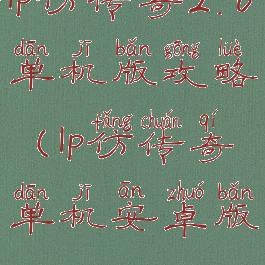 lp仿传奇2.0
dān jī bǎn gōng lüè
单机版攻略
fǎng chuán qí
(lp仿传奇
dān jī ān zhuó bǎn
单机安卓版